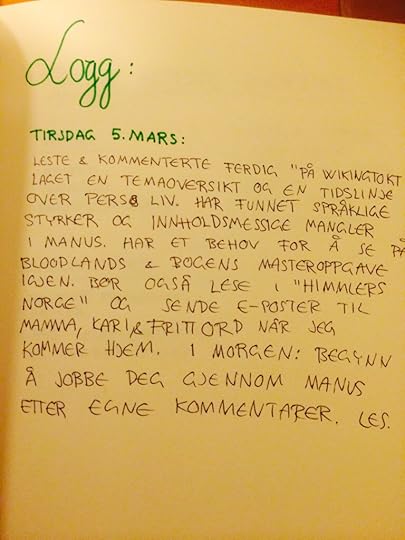 Logg:
TIRSDAG 5. MARS:
LESTE & KOMMENTERTE FERDIG "PÅ WIKINGTOKT
LAGET EN TEMAOVERSIKT OG EN TIDSLINJE
OVER PERS LIV. HAR FUNNET SPRÅKLIGE
STYRKER OG INNHOLDSMESSIGE MANGLER
I MANUS. HAR ET BEHOV FOR Å SE PÅ
BLOODLANDS & BOGENS MASTEROPPGAVE
IGJEN. BØR OGSÅ LESE I "HIMMLERS
NORGE" OG SENDE E-POSTER TIL
MAMMA, KARI & FRITT ORD NÅR JEG
KOMMER HJEM. I MORGEN: BEGYNN
Å JOBBE DEG GJENNOM MANUS
ETTER EGNE KOMMENTARER. LES.